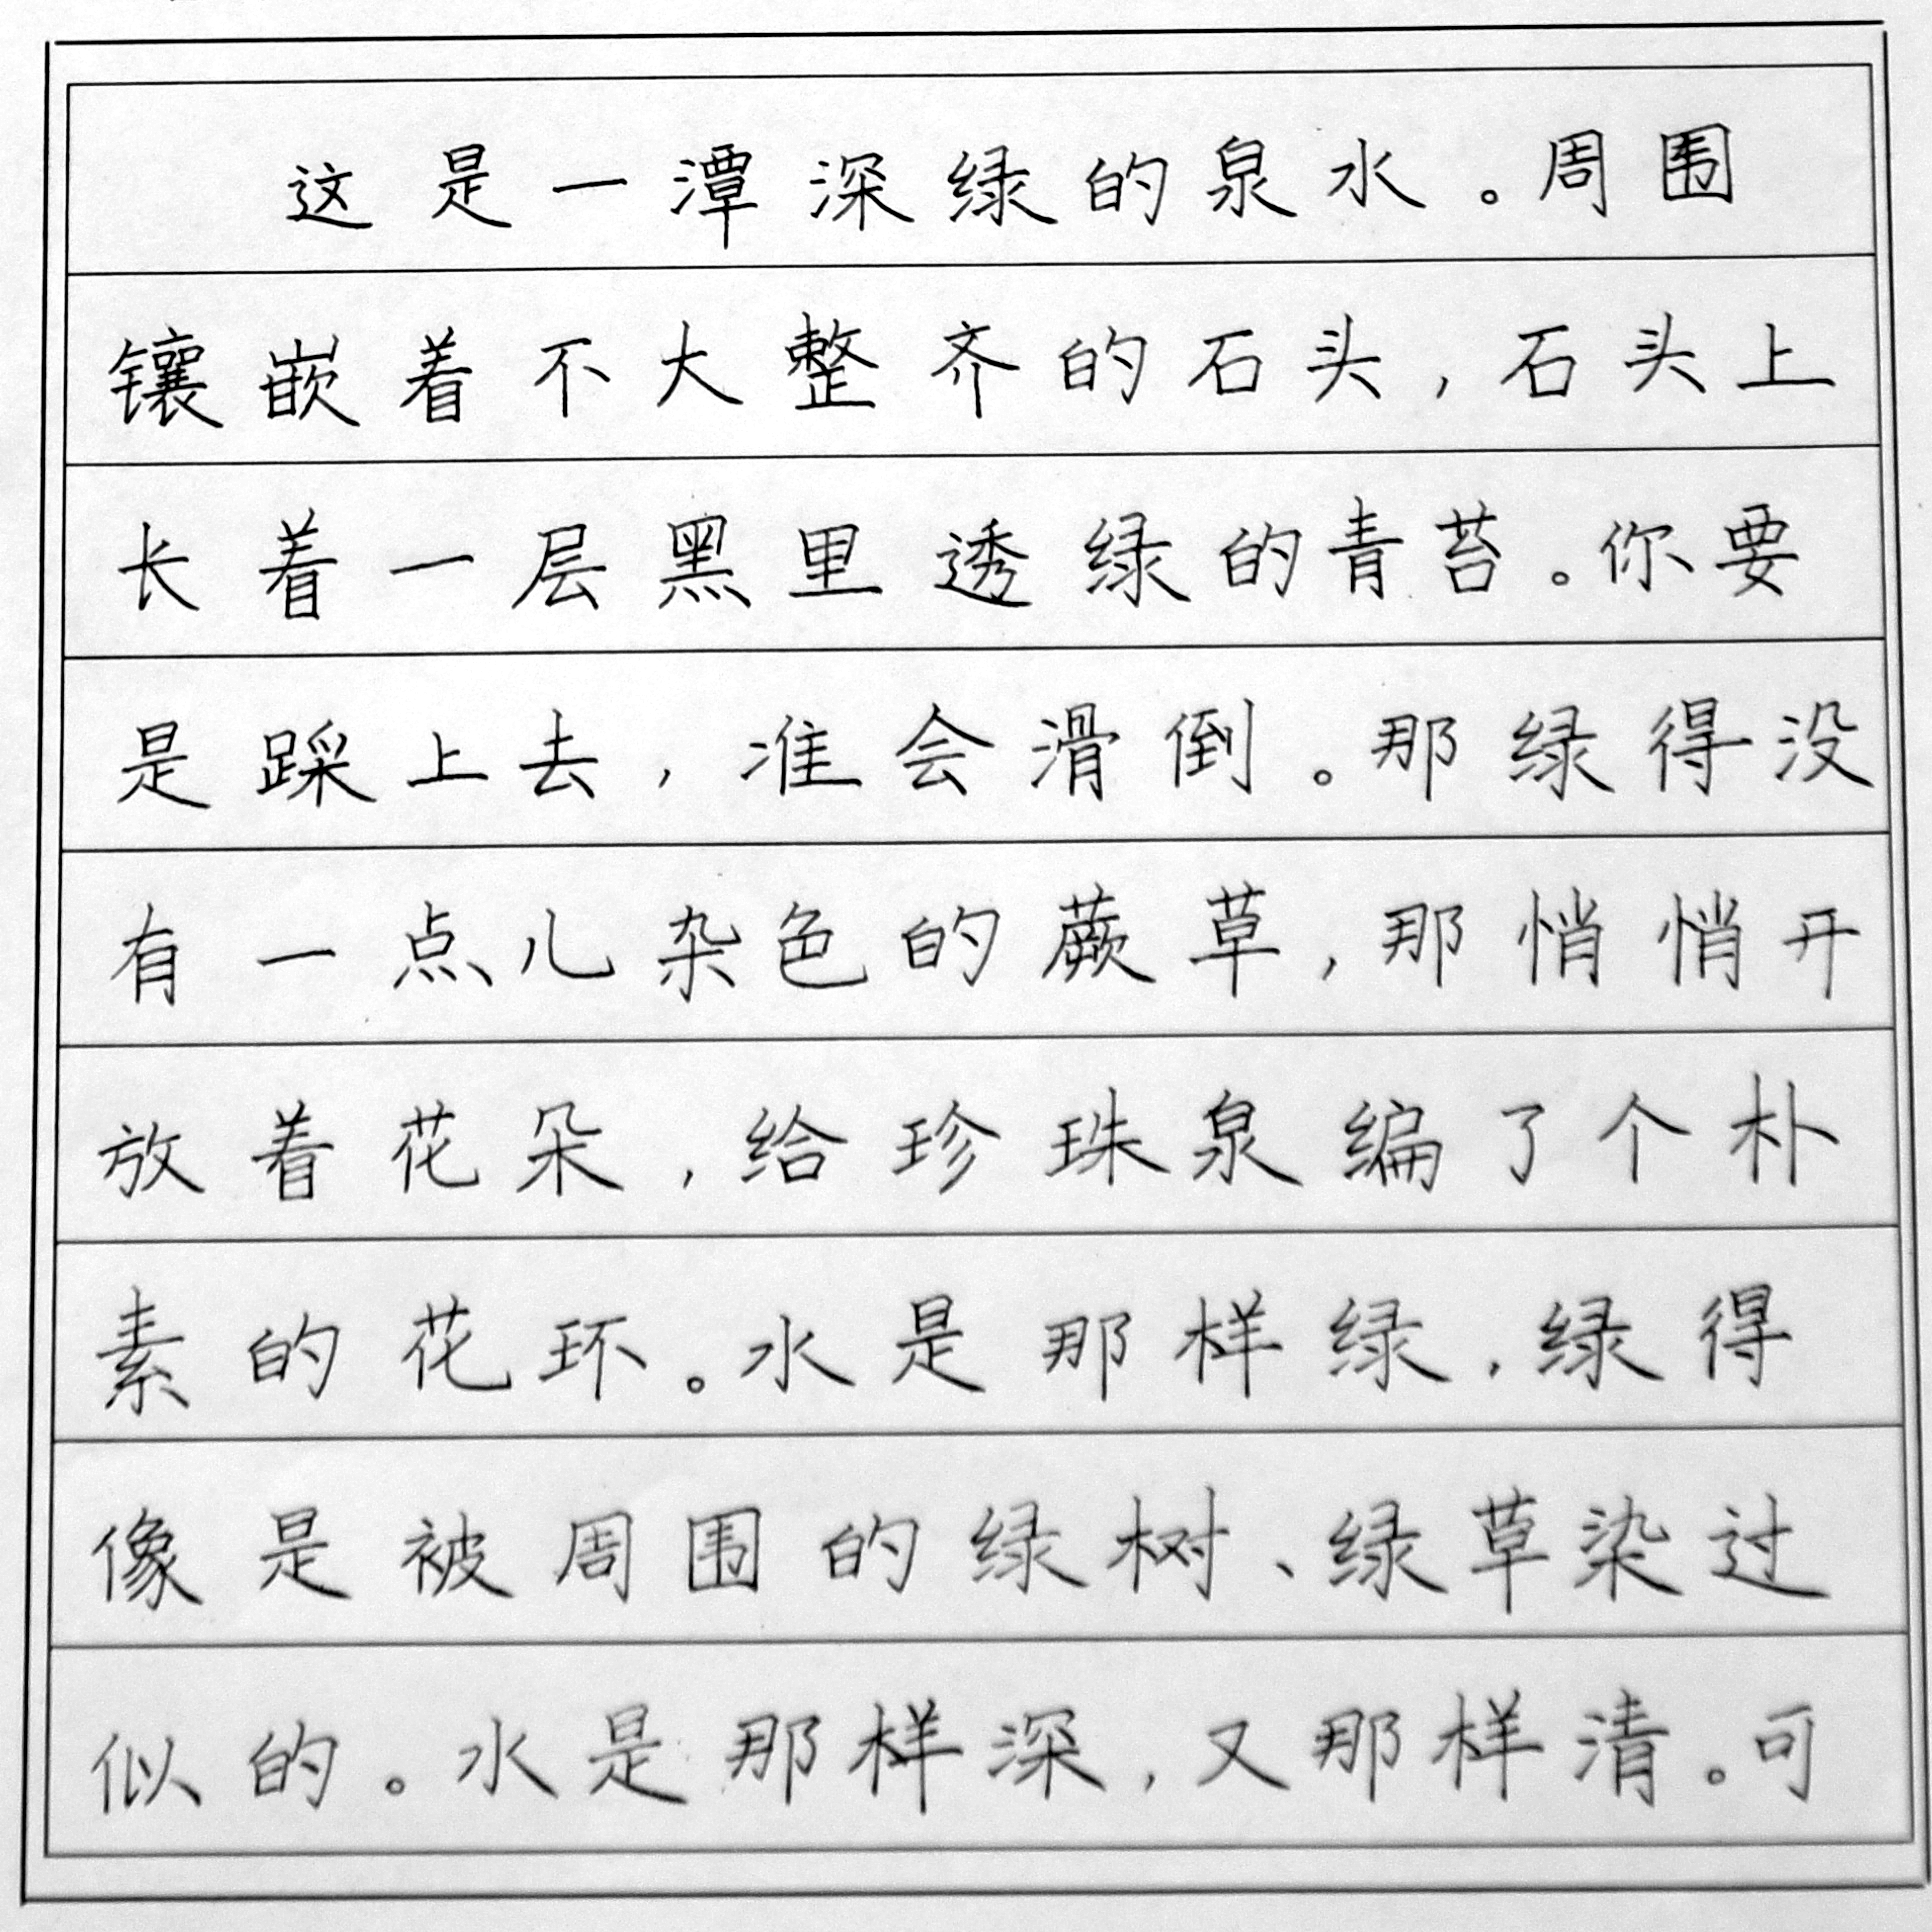 这是一潭深绿的泉水。周围
镶嵌着不大整齐的石头,石头上
长着一层黑里透绿的青苔。你要
是踩上去,准会滑倒。那绿得没
有一点儿杂色的蕨草,那悄悄开
放着花朵,给珍珠泉编了个朴
素的花环。水是那样绿,绿得
像是被周围的绿树、绿草染过
似的。水是那样深,又那样清。可